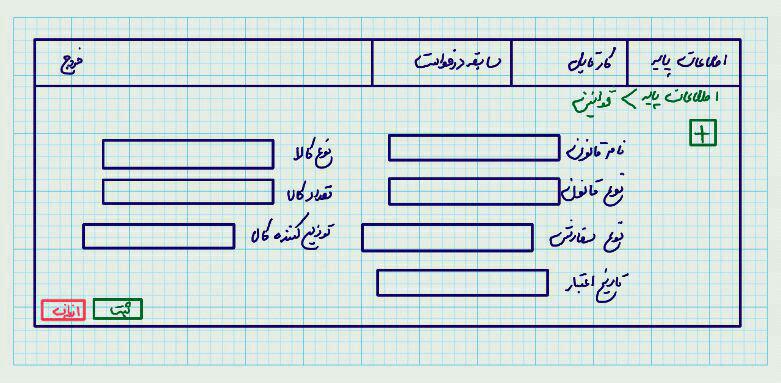 اطلاعات پایه کارتابل سابقه درخواست خروج
اطلاعات پایه > قوانین
+
نام قانون نوع کالا
نوع قانون تعداد کالا
نوع سفارش توزیع کننده کالا
تاریخ اعتبار
ثبت